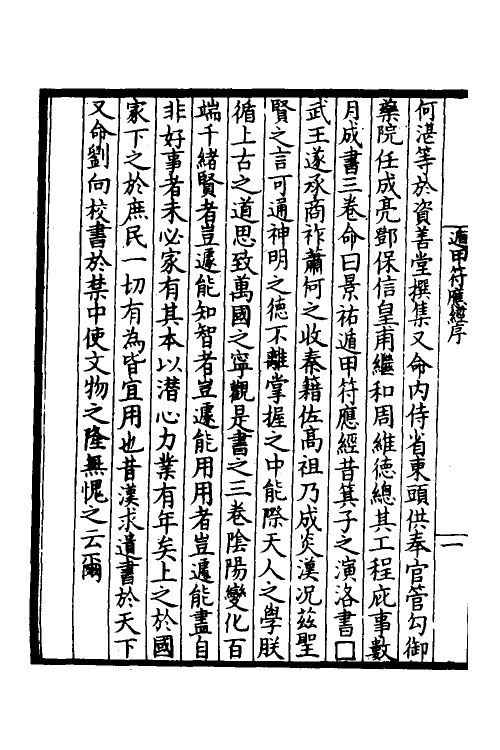 遁甲符應經序
一
何湛等於資善堂撰集又命內侍省東頭供奉官管勾御
藥院任成亮鄧保信皇甫繼和周維德總其工程庇事數
月成書三卷命曰景祐遁甲符應經昔箕子之演洛書□
武王遂承商祚蕭何之收秦籍佐高祖乃成炎漢況茲聖
賢之言可通神明之德不離掌握之中能際天人之學朕
循上古之道思致萬國之寧觀是書之三卷陰陽變化百
端千緒賢者豈遽能知智者豈遽能用用者豈遽能盡自
非好事者未必家有其本以潛心力業有年矣上之於國
家下之於庶民一切有為皆宜用也昔漢求遺書於天下
又命劉向校書於禁中使文物之隆無愧之云爾